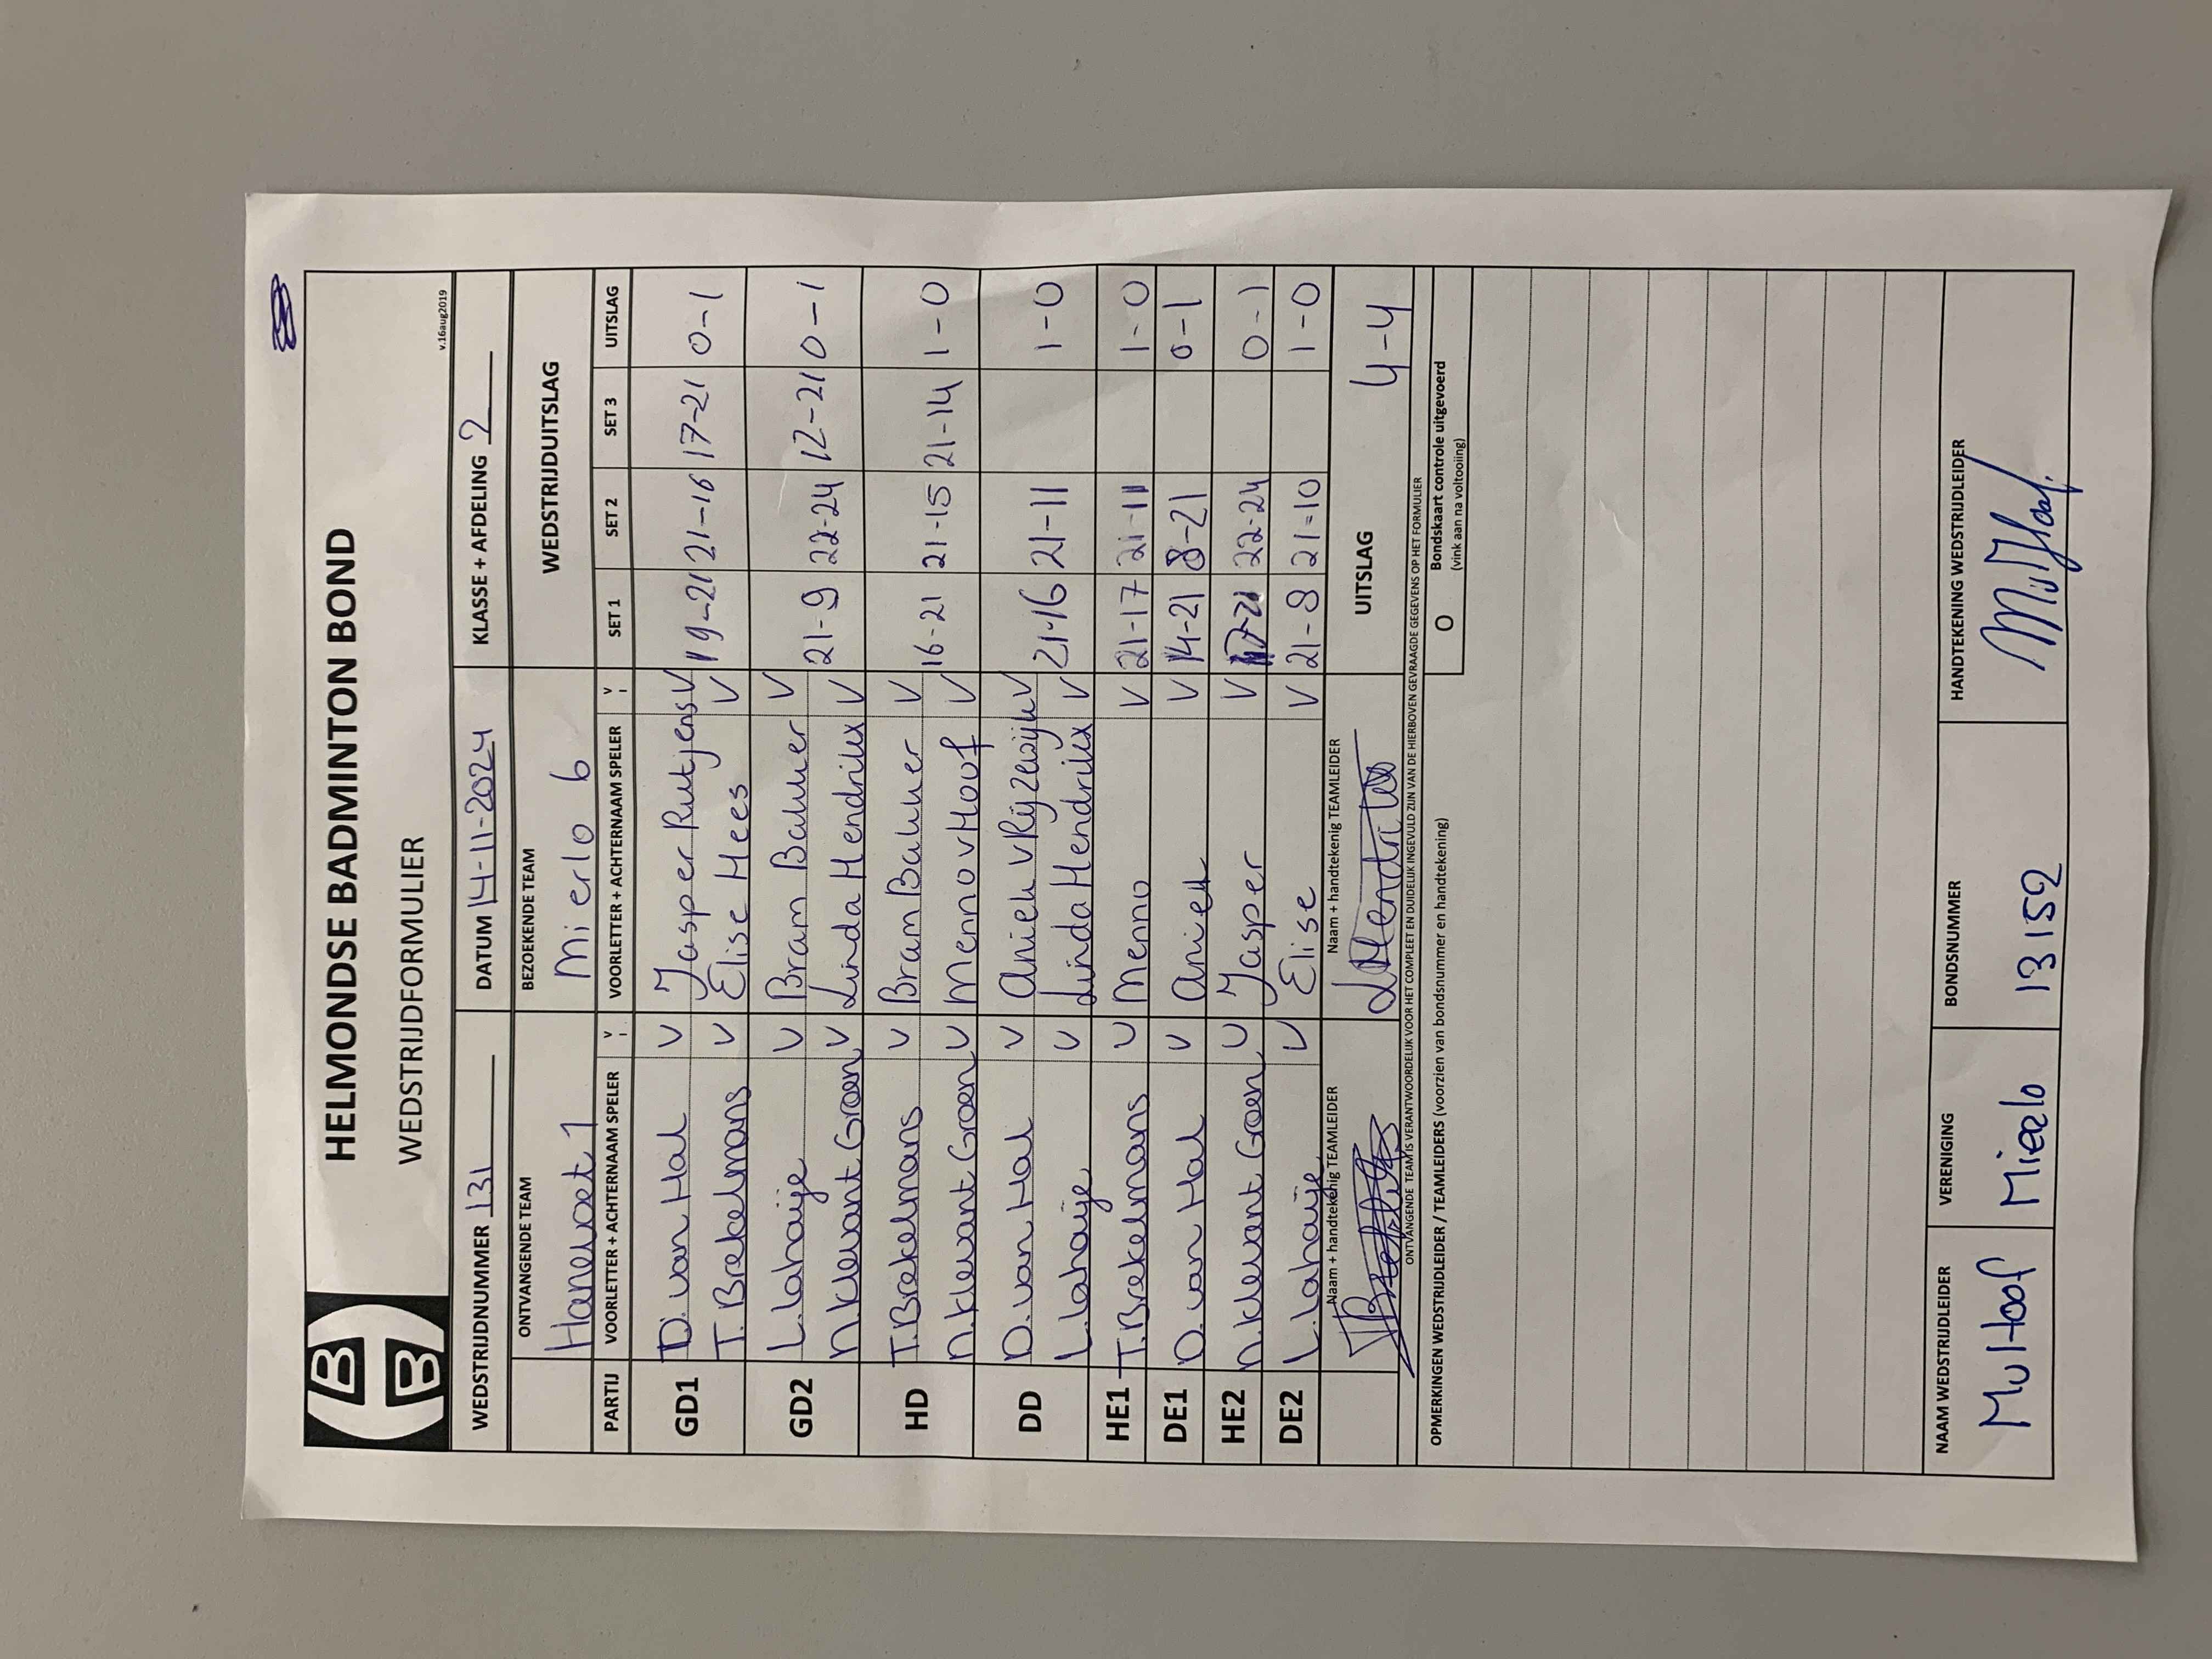 HELMONDSE BADMINTON BOND
WEDSTRIJDFORMULIER
v.16aug2019
WEDSTRIJDNUMMER 131 DATUM 14-11-2024 KLASSE + AFDELING 2
ONTVANGENDE TEAM BEZOEKENDE TEAM WEDSTRIJDUITSLAG
Hanevoet 1 Mierlo 6
PARTIJ VOORLETTER + ACHTERNAAM SPELER V VOORLETTER + ACHTERNAAM SPELER V SET 1 SET 2 SET 3 UITSLAG
GD1 D. van Hal V Jasper Rutjens V 19-21 21-16 17-21 0-1
T. Brekelmans V Elise Hees V
GD2 L. Lahaije V Bram Bakker V 21-9 22-24 12-21 0-1
N. Klevant Groen V Linda Hendrikx V
HD T. Brekelmans V Bram Bakker V 16-21 21-15 21-14 1-0
N. Klevant Groen V Menno v Hoof V
DD D. van Hal V Aniek v Rijzewijk V 21-16 21-11 1-0
L. Lahaije V Linda Hendrikx V
HE1 T. Brekelmans V Menno V 21-17 21-11 1-0
DE1 D. van Hal V Aniek V 14-21 8-21 0-1
HE2 N. Klevant Groen V Jasper V 17-21 22-24 0-1
DE2 L. Lahaije V Elise V 21-9 21-10 1-0
Naam + handtekenig TEAMLEIDER Naam + handtekenig TEAMLEIDER UITSLAG 4-4
LHendrikx
ONTVANGENDE TEAM IS VERANTWOORDELIJK VOOR HET COMPLEET EN DUIDELIJK INGEVULD ZIJN VAN DE HIERBOVEN GEVRAAGDE GEGEVENS OP HET FORMULIER
OPMERKINGEN WEDSTRIJDLEIDER / TEAMLEIDERS (voorzien van bondsnummer en handtekening)
O Bondskaart controle uitgevoerd
(vink aan na voltooiing)
NAAM WEDSTRIJDLEIDER VERENIGING BONDSNUMMER HANDTEKENING WEDSTRIJDLEIDER
MvHoof Mierlo 13152 MvHoof